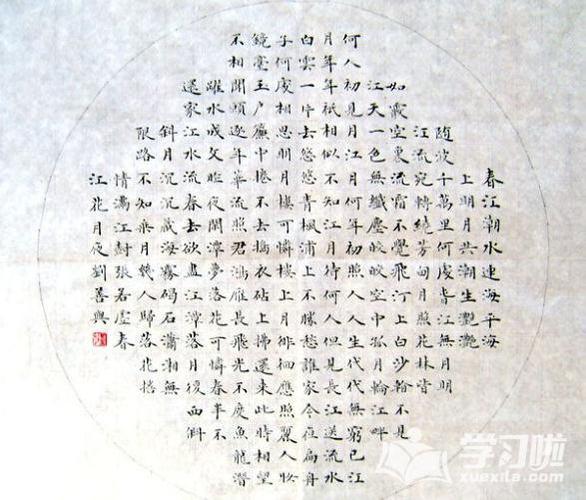 春江潮水連海平海
上明月共潮生灧灧
随波千萬里何處春江無月明
江流宛轉繞芳甸月照花林皆
如霰空裏流霜不覺飛汀上白沙看不見
江天一色無纖塵皎皎空中孤月輪江畔
何人初見月江月何年初照人人生代代無窮已江
月年年祇相似不知江月待何人但見長江送流水
白雲一片去悠悠青楓浦上不勝愁誰家今夜扁舟
子何處相思明月樓可憐樓上月徘徊應照離人妝
鏡臺玉户簾中捲不去擣衣砧上拂還來此時相望
不相聞願逐月華流照君鴻雁長飛光不度魚龍潛
躍水成文昨夜閑潭夢落花可憐春半不
還家江水流春去欲盡江潭落月復西斜
斜月沉沉藏海霧碣石瀟湘無
限路不知乘月幾人歸落花搖
情滿江樹張若虛春
江花月夜劉善興
学习啦
www.xuexila.com